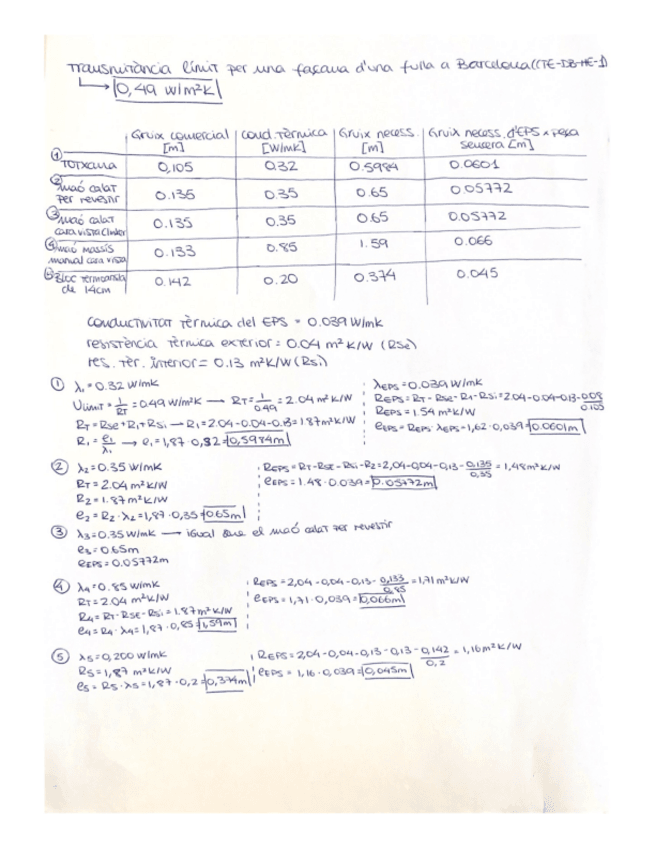 Transmitància límit per una façana d'una fulla a Barcelona (CTE-DB-HE-1)
0,49 W/m²K
Gruix comercial [m] Cond. tèrmica [W/mK] Gruix necess. [m] Gruix necess. d'EPS x peça sencera [m]
① Totxana 0,105 0.32 0.5984 0.0601
② maó calat per revestir 0.135 0.35 0.65 0.05772
③ maó calat cara vista clinker 0.135 0.35 0.65 0.05772
④ maó massís manual cara vista 0.133 0.85 1.59 0.066
⑤ Bloc termoarcilla de 14cm 0.142 0.20 0.374 0.045
conductivitat tèrmica del EPS = 0.039 W/mK
resistència tèrmica exterior = 0.04 m²K/W (Rse)
res. tèr. interior = 0.13 m²K/W (Rsi)
① λ₁ = 0.32 W/mK
Ulímit = 1/RT = 0.49 W/m²K → RT = 1/0.49 = 2.04 m²K/W
RT = Rse + R1 + Rsi → R1 = 2.04-0.04-0.13 = 1.87 m²K/W
R1 = e1/λ1 → e1 = 1,87·0,32 = 0,5984m
λEPS = 0.039 W/mK
REPS = RT - RSE - R1 - RSi = 2.04-0.04-0.13-
REPS = 1.54 m²K/W
eEPS = REPS·λEPS = 1,62·0,039 = 0.0601m
② λ2 = 0.35 W/mK
RT = 2.04 m²K/W
R2 = 1.87 m²K/W
e2 = R2·λ2 = 1,87·0,35 = 0.65m
REPS = RT - RSE - RSi - R2 = 2,04-0,04-0,13-0,135/0,35 = 1,48 m²K/W
eEPS = 1.48·0.039 = 0.05772m
③ λ3 = 0.35 W/mK → igual que el maó calat per revestir
e3 = 0.65m
eEPS = 0.05772m
④ λ4 = 0.85 W/mK
RT = 2.04 m²K/W
R4 = RT - RSE - RSi = 1.87 m²K/W
e4 = R4·λ4 = 1,87·0,85 = 1,59m
REPS = 2,04-0,04-0,13-0,133/0,85 = 1,71 m²K/W
eEPS = 1,71·0,039 = 0,066m
⑤ λ5 = 0,200 W/mK
R5 = 1,87 m²K/W
e5 = R5·λ5 = 1,87·0,2 = 0,374m
REPS = 2,04-0,04-0,13-0,13-0,142/0,2 = 1,16 m²K/W
eEPS = 1,16·0,039 = 0,045m